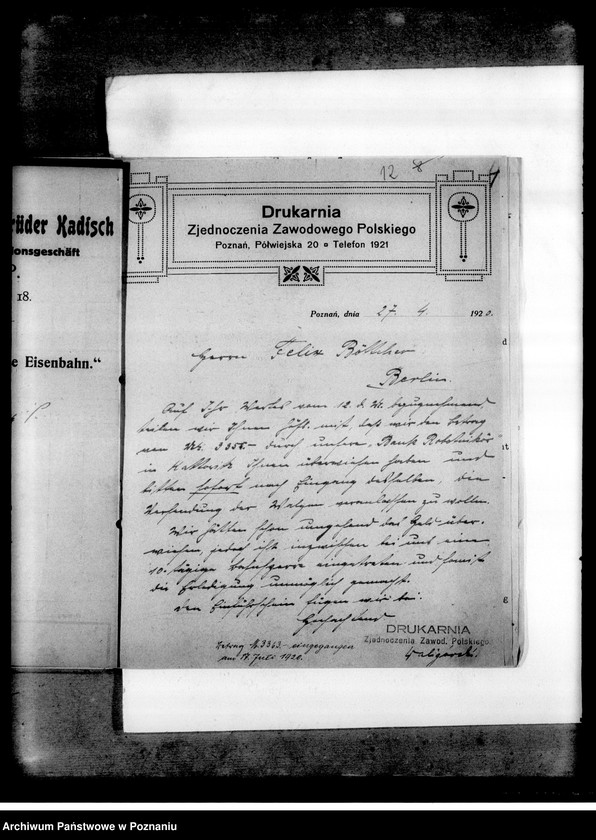 12 8
rüder Kadisch
ionsgeschäft
18.
e Eisenbahn."
Drukarnia
Zjednoczenia Zawodowego Polskiego
Poznań, Półwiejska 20 ¤ Telefon 1921
Poznań, dnia 27. 4. 1920.
Herrn Felix Böttcher
Berlin.
Auf Ihr Wertes vom 12. d. M. bezugnehmend
teilen wir Ihnen höfl. mit, daß wir den Betrag
von Mk. 3356.- durch unsere „Bank Robotników"
in Kattowitz Ihnen überwiesen haben und
bitten sofort nach Eingang desselben, die
Versendung der Walzen veranlassen zu wollen.
Wir hätten schon umgehend das Geld über-
wiesen, jedoch ist inzwischen bei uns eine
10-tägige eingetreten und somit
die Erledigung unmöglich gemacht.
Den Einfuhrschein fügen wir bei.
Hochachtend
DRUKARNIA
Zjednoczenia Zawod. Polskiego
Betrag M. 3363.- eingegangen
am 17. Juli 1920.
d
it
g
Archiwum Państwowe w Poznaniu